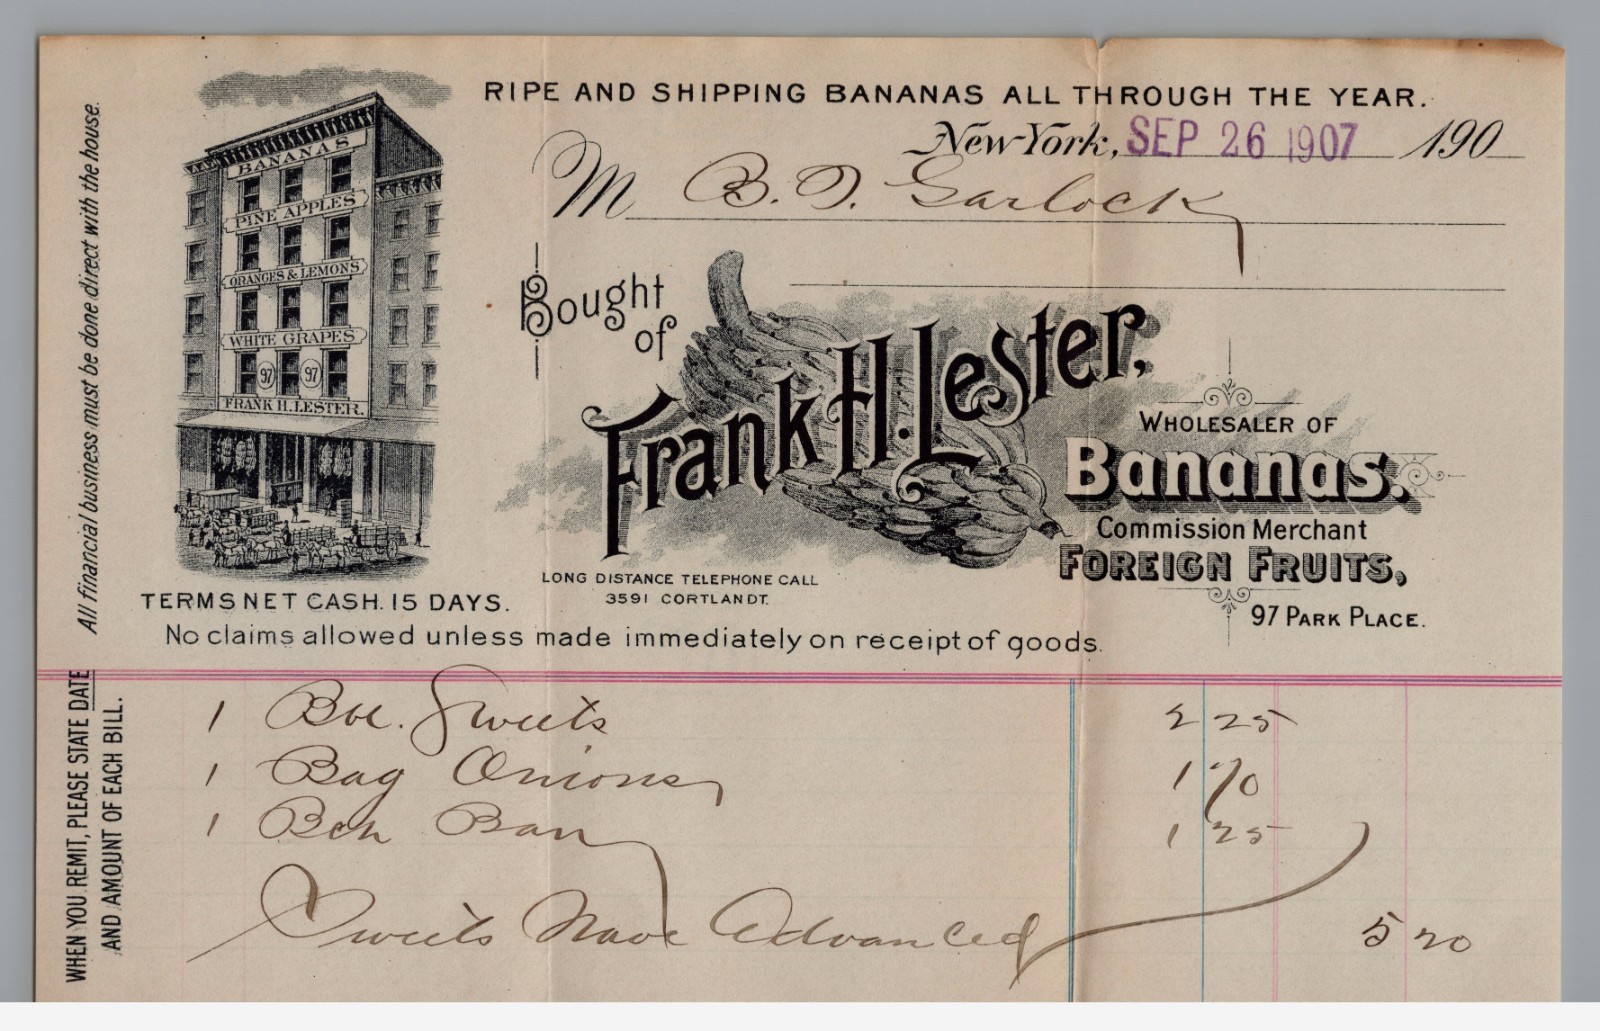 All financial business must be done direct with the house.
RIPE AND SHIPPING BANANAS ALL THROUGH THE YEAR.
New York, SEP 26 1907 190
M B. T. Garlock
BANANAS
PINE APPLES
ORANGES & LEMONS
WHITE GRAPES
97 97
FRANK H. LESTER.
Bought of
Frank H. Lester,
WHOLESALER OF
Bananas.
Commission Merchant
FOREIGN FRUITS,
97 PARK PLACE.
LONG DISTANCE TELEPHONE CALL
3591 CORTLANDT.
TERMS NET CASH. 15 DAYS.
No claims allowed unless made immediately on receipt of goods.
WHEN YOU REMIT, PLEASE STATE DATE
AND AMOUNT OF EACH BILL.
1 Sweets 2 25
1 Bag Onions 1 70
1 Bch Ban 1 25
Sweets Have Advanced 5 20